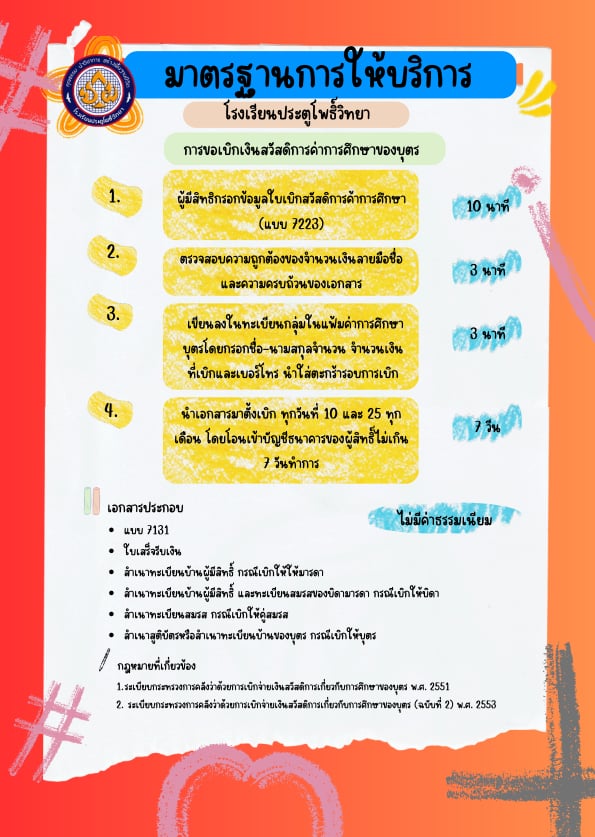 มาตรฐานการให้บริการ
โรงเรียนประตูโพธิ์วิทยา
การขอเบิกเงินสวัสดิการค่าการศึกษาของบุตร
1.
ผู้มีสิทธิกรอกข้อมูลใบเบิกสวัสดิการค้าการศึกษา
(แบบ 7223)
10 นาที
2.
ตรวจสอบความถูกต้องของจำนวนเงินลายมือชื่อ
และความครบถ้วนของเอกสาร
3 นาที
3.
เขียนลงในทะเบียนกลุ่มในแฟ้มค่าการศึกษา
บุตรโดยกรอกชื่อ-นามสกุลจำนวน จำนวนเงิน
ที่เบิกและเบอร์โทร นำใส่ตะกร้ารอบการเบิก
3 นาที
4.
นำเอกสารมาตั้งเบิก ทุกวันที่ 10 และ 25 ทุก
เดือน โดยโอนเข้าบัญชีธนาคารของผู้สิทธิ์ไม่เกิน
7 วันทำการ
7 วัน
เอกสารประกอบ
ไม่มีค่าธรรมเนียม
• แบบ 7131
• ใบเสร็จรับเงิน
• สำเนาทะเบียนบ้านผู้มีสิทธิ์ กรณีเบิกให้ให้มารดา
• สำเนาทะเบียนบ้านผู้มีสิทธิ์ และทะเบียนสมรสของบิดามารดา กรณีเบิกให้บิดา
• สำเนาทะเบียนสมรส กรณีเบิกให้คู่สมรส
• สำเนาสูติบัตรหรือสำเนาทะเบียนบ้านของบุตร กรณีเบิกให้บุตร
กฎหมายที่เกี่ยวข้อง
1.ระเบียบกระทรวงการคลังว่าด้วยการเบิกจ่ายเงินสวัสดิการเกี่ยวกับการศึกษาของบุตร พ.ศ. 2551
2. ระเบียบกระทรวงการคลังว่าด้วยการเบิกจ่ายเงินสวัสดิการเกี่ยวกับการศึกษาของบุตร (ฉบับที่ 2) พ.ศ. 2553